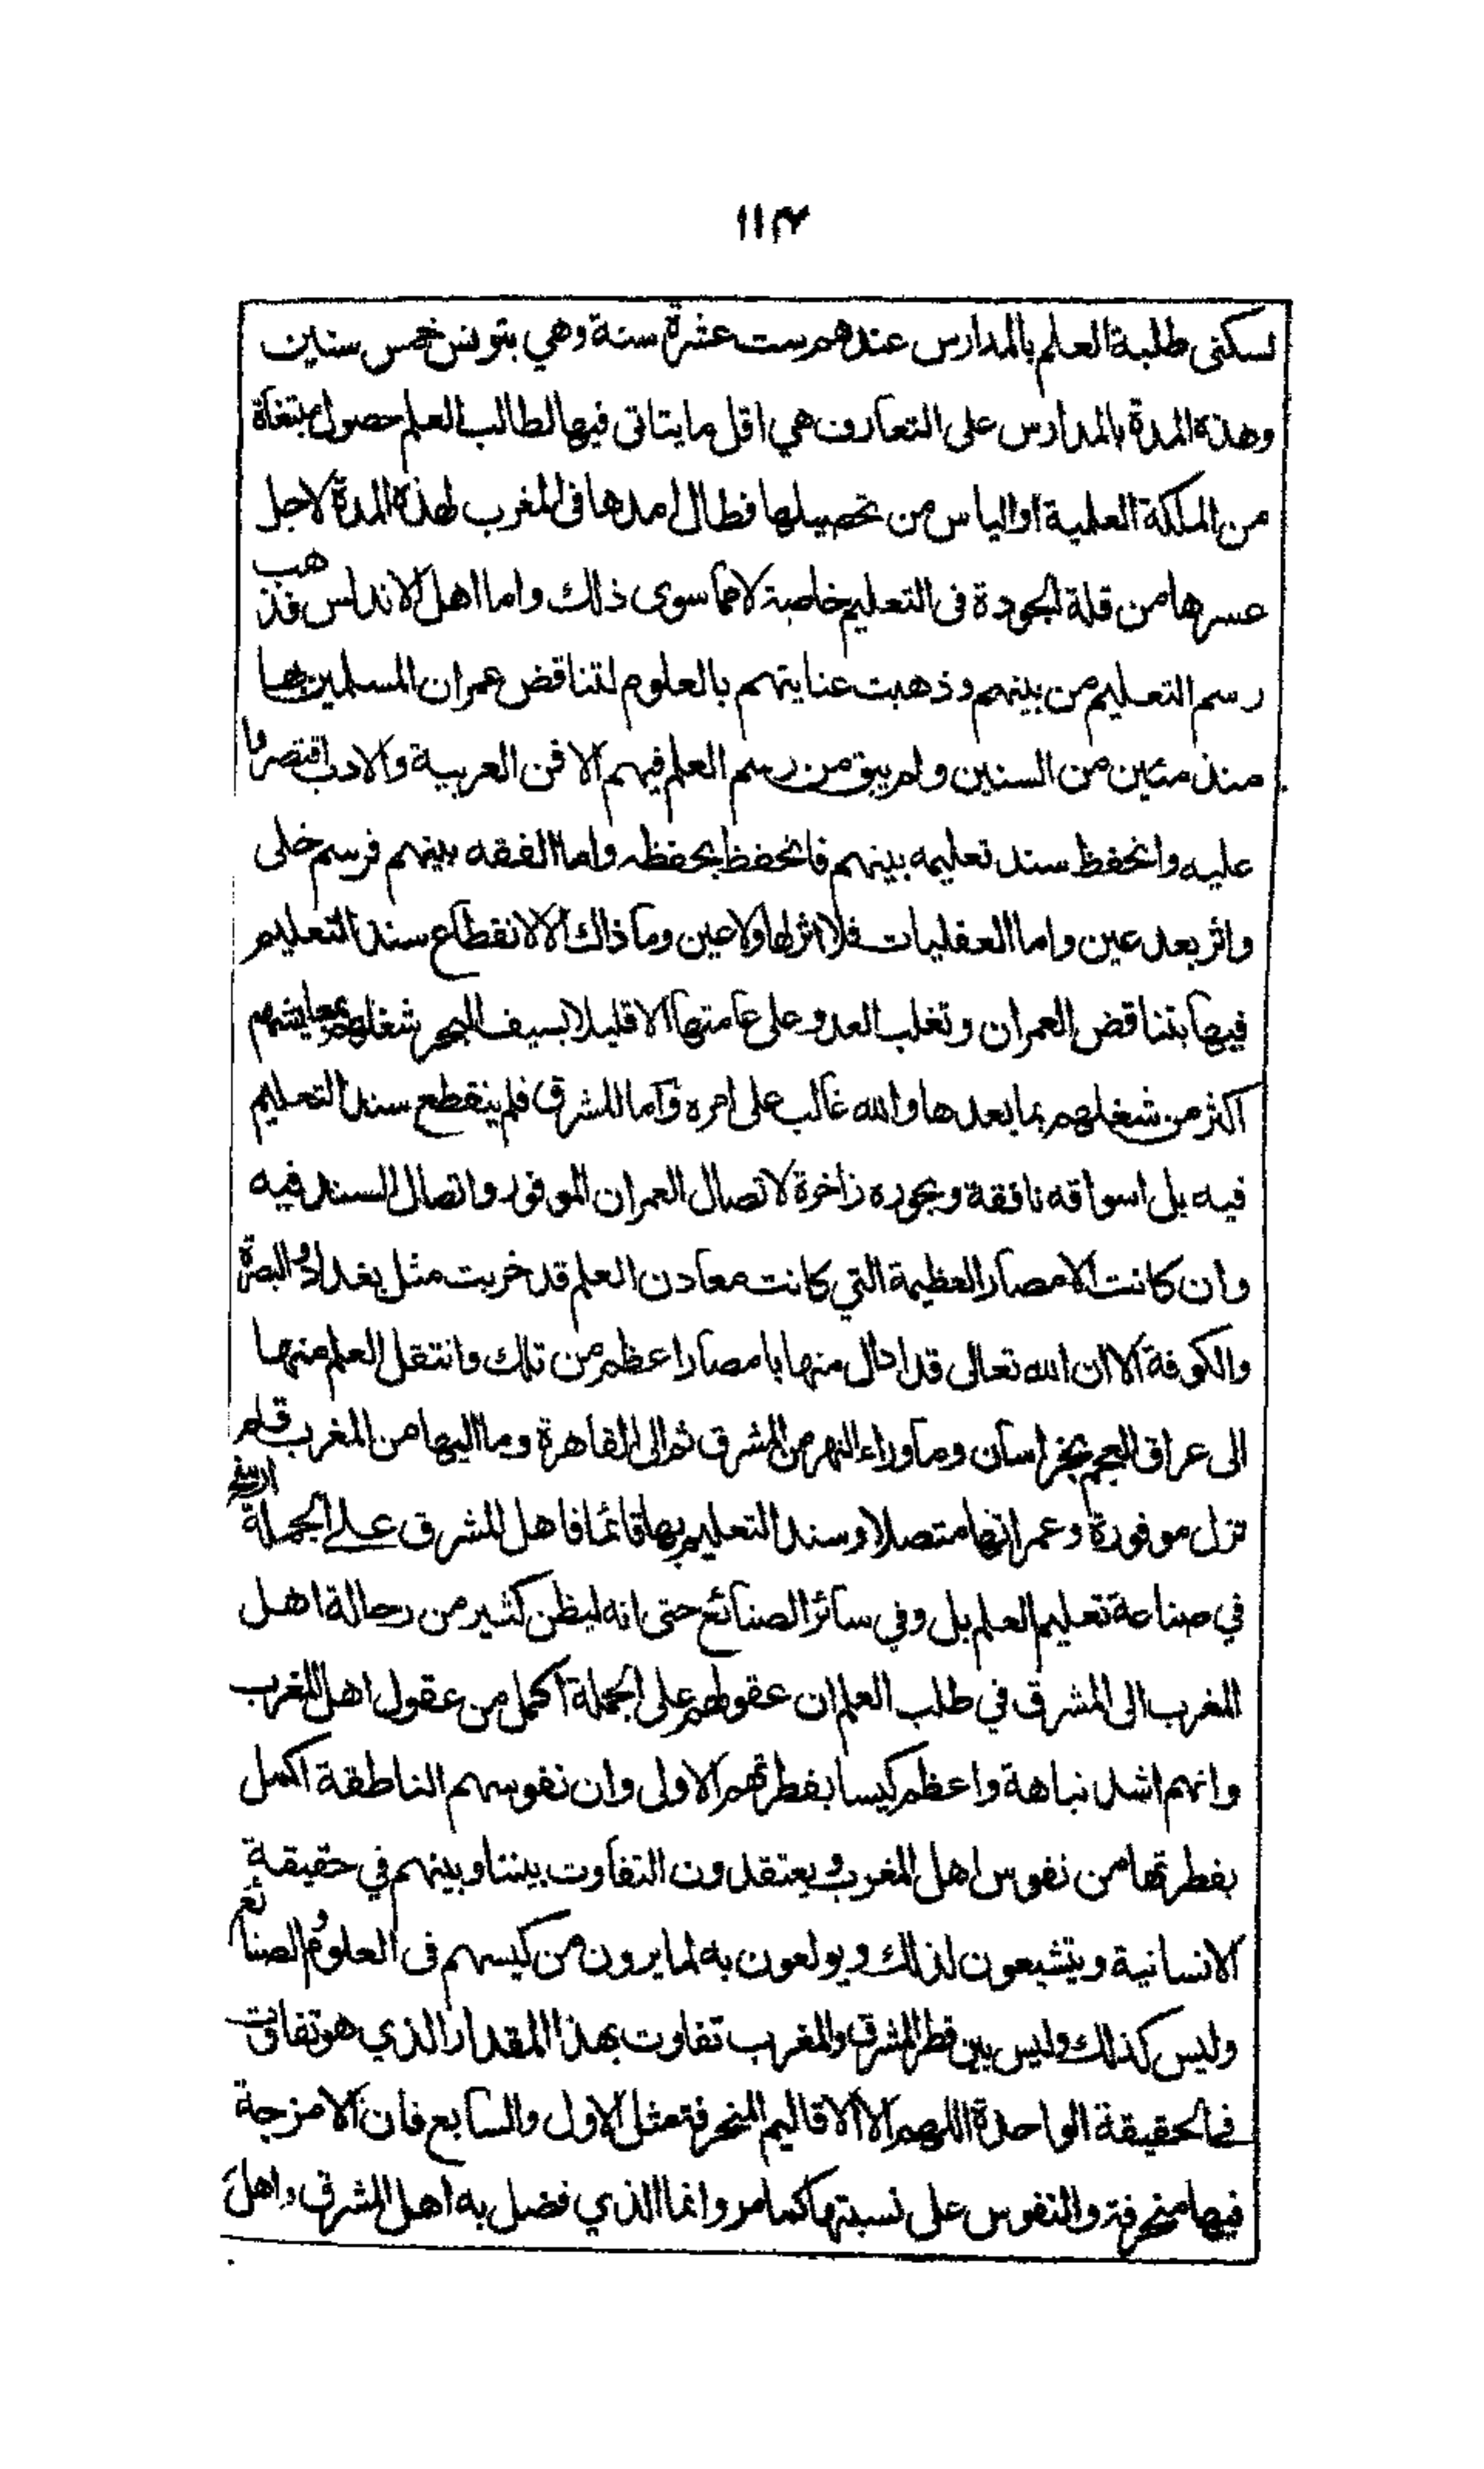 ١١٣
لسكنى طلبة العلم بالمدارس عندهم ست عشرة سنة وهي بتونس خمس سنين
وهذه المدة بالمدارس على التعارف هي اقل ما يتاتى فيها لطالب العلم حصول مبتغاة
من الملكة العلمية او الياس من تحصيلها فطال امدها فى المغرب لهذه المدة لاجل
عسرها من قلة الجودة فى التعليم خاصة لا مما سوى ذلك واما اهل الاندلس فذهب
رسم التعليم من بينهم وذهبت عنايتهم بالعلوم لتناقض عمران المسلمين بها
منذ مئين من السنين ولم يبق من رسم العلم فيهم الا فن العربية والادب اقتصروا
عليه وانحفظ سند تعليمه بينهم فانحفظ بحفظه واما الفقه بينهم فرسم خلى
واثر بعد عين واما العقليات فلا اثر لها ولا عين وما ذاك الا لانقطاع سند التعليم
فيها بتناقض العمران وتغلب العدو على عامتها الا قليلا بسيف البحر شغلهم بمعايشهم
اكثر من شغلهم بما بعدها والله غالب على امره واما المشرق فلم ينقطع سند التعليم
فيه بل اسواقه نافقة وبحوره زاخرة لاتصال العمران الموفور واتصال السند فيه
وان كانت الامصار العظيمة التي كانت معادن العلم قد خربت مثل بغداد والبصرة
والكوفة الا ان الله تعالى قد ادال منها بامصار اعظم من تلك وانتقل العلم منها
الى عراق العجم بخراسان وما وراء النهر من المشرق ثم الى القاهرة وما اليها من المغرب فلم
تزل موفورة وعمرانها متصلا وسند التعليم بها قائما فاهل المشرق على الجملة ارسخ
في صناعة تعليم العلم بل وفي سائر الصنائع حتى انه ليظن كثير من رحالة اهل
المغرب الى المشرق في طلب العلم ان عقولهم على الجملة اكمل من عقول اهل المغرب
وانهم اشد نباهة واعظم كيسا بفطرتهم الاولى وان نفوسهم الناطقة اكمل
بفطرتها من نفوس اهل المغرب ويعتقدون التفاوت بيننا وبينهم في حقيقة
الانسانية ويتشيعون لذلك ويولعون به لما يرون من كيسهم فى العلوم والصنائع
وليس كذلك وليس بين قطر المشرق والمغرب تفاوت بهذا المقدار الذي هو تفاوت
فى الحقيقة الواحدة اللهم الا الاقاليم المنحرفة مثل الاول والسابع فان الامزجة
فيها منحرفة والنفوس على نسبتها كما مر وانما الذي فضل به اهل المشرق اهل